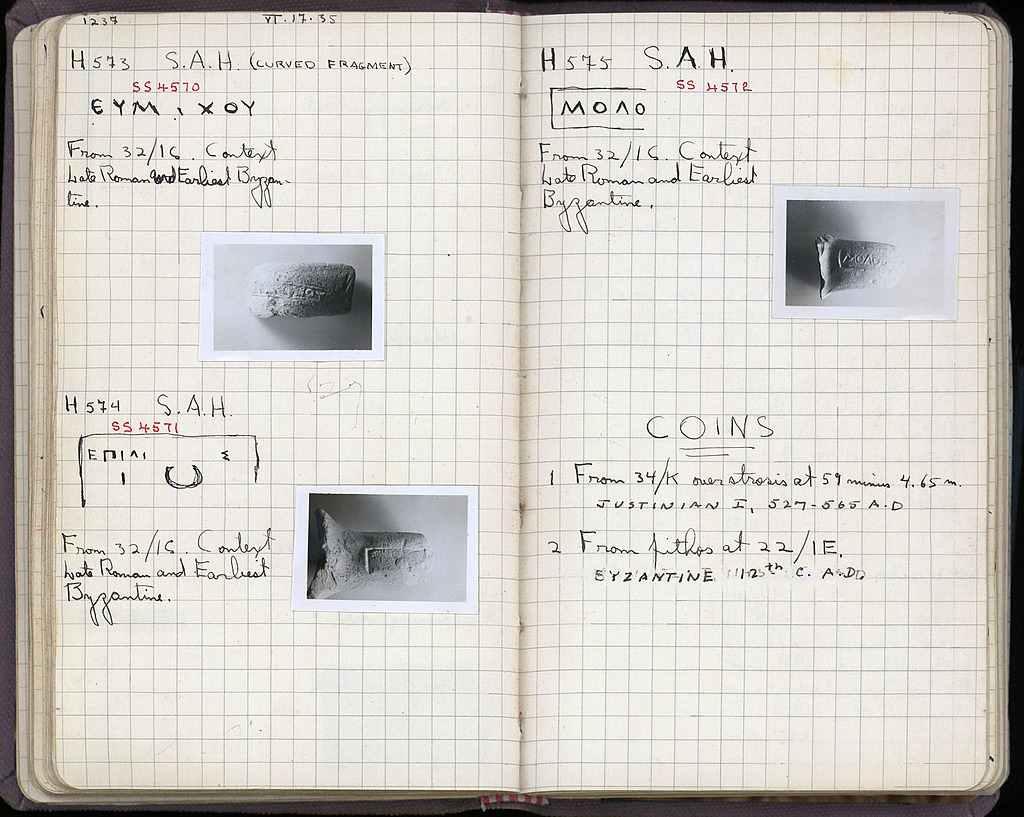 1237 VI.17.35
H 573 S.A.H. (CURVED FRAGMENT)
SS 4570
ЄYM ΧΟΥ
From 32/IG. Context
Late Roman and Earliest Byzan-
tine.
H 574 S.A.H.
SS 4571
ΕΠΙΛΙ Σ
Ι
From 32/IG. Context
Late Roman and Earliest
Byzantine.
H 575 S.A.H.
SS 4572
ΜΟΛΟ
From 32/IG. Context
Late Roman and Earliest
Byzantine.
ΜΟΛΟ
COINS
1 From 34/K over strosis at 59 minus 4.65 m.
JUSTINIAN I, 527-565 A.D
2 From pithos at 22/IE.
BYZANTINE 12th C. A.D.